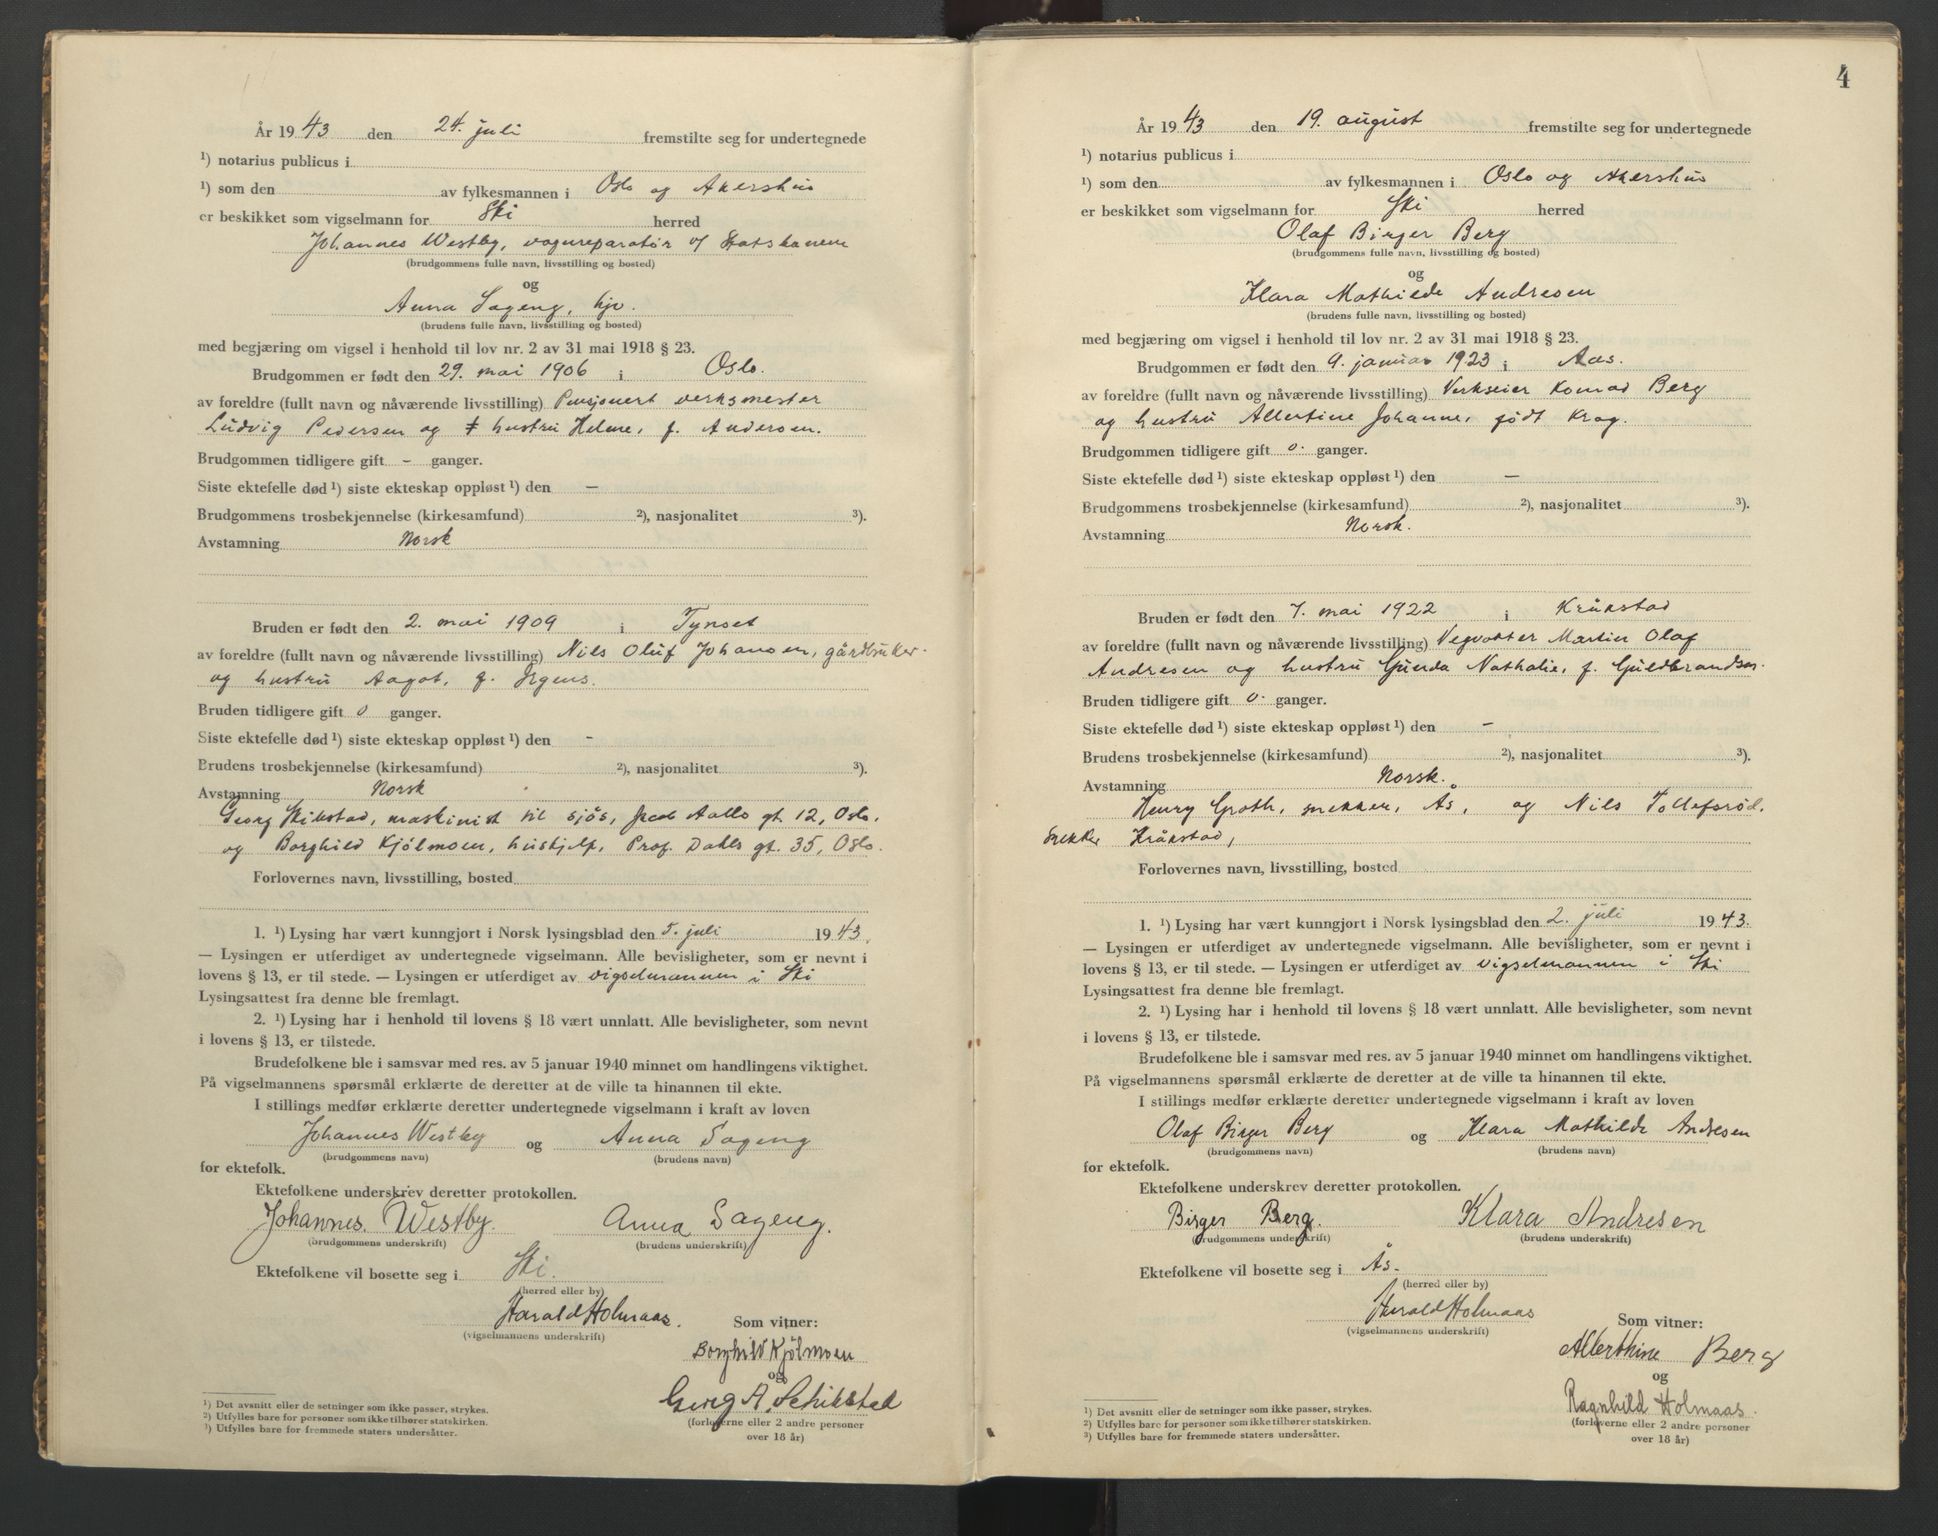 År 1943 den 24. juli fremstilte seg for undertegnede
¹) notarius publicus i
¹) som den av fylkesmannen i Oslo og Akershus
er beskikket som vigselmann for Ski herred
Johannes Westby, vognreparatør v/ Statsbanene
(brudgommens fulle navn, livsstilling og bosted)
og
Anna Sageng, hjv.
(brudens fulle navn, livsstilling og bosted)
med begjæring om vigsel i henhold til lov nr. 2 av 31 mai 1918 § 23.
Brudgommen er født den 29. mai 1906 i Oslo.
av foreldre (fullt navn og nåværende livsstilling) Pensjonert verksmester
Ludvig Pedersen og hustru Helene, f. Andersen.
Brudgommen tidligere gift - ganger.
Siste ektefelle død ¹) siste ekteskap oppløst ¹) den —
Brudgommens trosbekjennelse (kirkesamfund) ²), nasjonalitet ³).
Avstamning Norsk
Bruden er født den 2. mai 1909 i Tynset
av foreldre (fullt navn og nåværende livsstilling) Nils Oluf Johansen, gårdbruker
og hustru Aagot, f.
Bruden tidligere gift 0 ganger.
Siste ektefelle død ¹) siste ekteskap oppløst ¹) den -
Brudens trosbekjennelse (kirkesamfund) ²), nasjonalitet ³).
Avstamning Norsk
Georg Skibstad, maskinist til sjøs, Jacob Aalls gt. 12, Oslo.
og Borghild Kjölmoen, hushjelp, Prof. Dahls gt. 35, Oslo.
Forlovernes navn, livsstilling, bosted
1. ¹) Lysing har vært kunngjort i Norsk lysingsblad den 5. juli 1943.
— Lysingen er utferdiget av undertegnede vigselmann. Alle bevisligheter, som er nevnt i
lovens § 13, er til stede. — Lysingen er utferdiget av vigselmannen i Ski
Lysingsattest fra denne ble fremlagt.
2. ¹) Lysing har i henhold til lovens § 18 vært unnlatt. Alle bevisligheter, som nevnt
i lovens § 13, er tilstede.
Brudefolkene ble i samsvar med res. av 5 januar 1940 minnet om handlingens viktighet.
På vigselmannens spørsmål erklærte de deretter at de ville ta hinannen til ekte.
I stillings medfør erklærte deretter undertegnede vigselmann i kraft av loven
Johannes Westby og Anna Sageng
(brudgommens navn) (brudens navn)
for ektefolk.
Ektefolkene underskrev deretter protokollen.
Johannes Westby. Anna Sageng.
(brudgommens underskrift) (brudens underskrift)
Ektefolkene vil bosette seg i Ski.
(herred eller by)
Harald Holmaas.
(vigselmannens underskrift)
Som vitner:
Borghild Kjölmoen
og
Georg A. Schibstad
(forloverne eller 2 andre personer
over 18 år)
¹) Det avsnitt eller de setninger som ikke passer, strykes.
²) Utfylles bare for personer som ikke tilhører statskirken.
³) Utfylles bare for fremmede staters undersåtter.
4
År 1943 den 19. august fremstilte seg for undertegnede
¹) notarius publicus i
¹) som den av fylkesmannen i Oslo og Akershus
er beskikket som vigselmann for Ski herred
Olaf Birger Berg
(brudgommens fulle navn, livsstilling og bosted)
og
Klara Mathilde Andresen
(brudens fulle navn, livsstilling og bosted)
med begjæring om vigsel i henhold til lov nr. 2 av 31 mai 1918 § 23.
Brudgommen er født den 9. januar 1923 i Aas.
av foreldre (fullt navn og nåværende livsstilling) Verkseier Konrad Berg
og hustru Albertine Johanne, født Krog.
Brudgommen tidligere gift 0. ganger.
Siste ektefelle død ¹) siste ekteskap oppløst ¹) den —
Brudgommens trosbekjennelse (kirkesamfund) ²), nasjonalitet ³).
Avstamning Norsk.
Bruden er født den 7. mai 1922 i Kråkstad
av foreldre (fullt navn og nåværende livsstilling) Vegvokter Martin Olaf
Andresen og hustru Gunda Nathalie, f. Guldbrandsen.
Bruden tidligere gift 0. ganger.
Siste ektefelle død ¹) siste ekteskap oppløst ¹) den -
Brudens trosbekjennelse (kirkesamfund) ²), nasjonalitet ³).
Avstamning Norsk.
Henry Groth, snekker, Ås, og Nils Tollefsröd,
Snekker Kråkstad,
Forlovernes navn, livsstilling, bosted
1. ¹) Lysing har vært kunngjort i Norsk lysingsblad den 2. juli 1943.
— Lysingen er utferdiget av undertegnede vigselmann. Alle bevisligheter, som er nevnt i
lovens § 13, er til stede. — Lysingen er utferdiget av vigselmannen i Ski
Lysingsattest fra denne ble fremlagt.
2. ¹) Lysing har i henhold til lovens § 18 vært unnlatt. Alle bevisligheter, som nevnt
i lovens § 13, er tilstede.
Brudefolkene ble i samsvar med res. av 5 januar 1940 minnet om handlingens viktighet.
På vigselmannens spørsmål erklærte de deretter at de ville ta hinannen til ekte.
I stillings medfør erklærte deretter undertegnede vigselmann i kraft av loven
Olaf Birger Berg og Klara Mathilde Andresen
(brudgommens navn) (brudens navn)
for ektefolk.
Ektefolkene underskrev deretter protokollen.
Birger Berg. Klara Andresen
(brudgommens underskrift) (brudens underskrift)
Ektefolkene vil bosette seg i Ås.
(herred eller by)
Harald Holmaas
(vigselmannens underskrift)
Som vitner:
Alberthine Berg
og
Ragnhild Holmaas.
(forloverne eller 2 andre personer
over 18 år)
¹) Det avsnitt eller de setninger som ikke passer, strykes.
²) Utfylles bare for personer som ikke tilhører statskirken.
³) Utfylles bare for fremmede staters undersåtter.